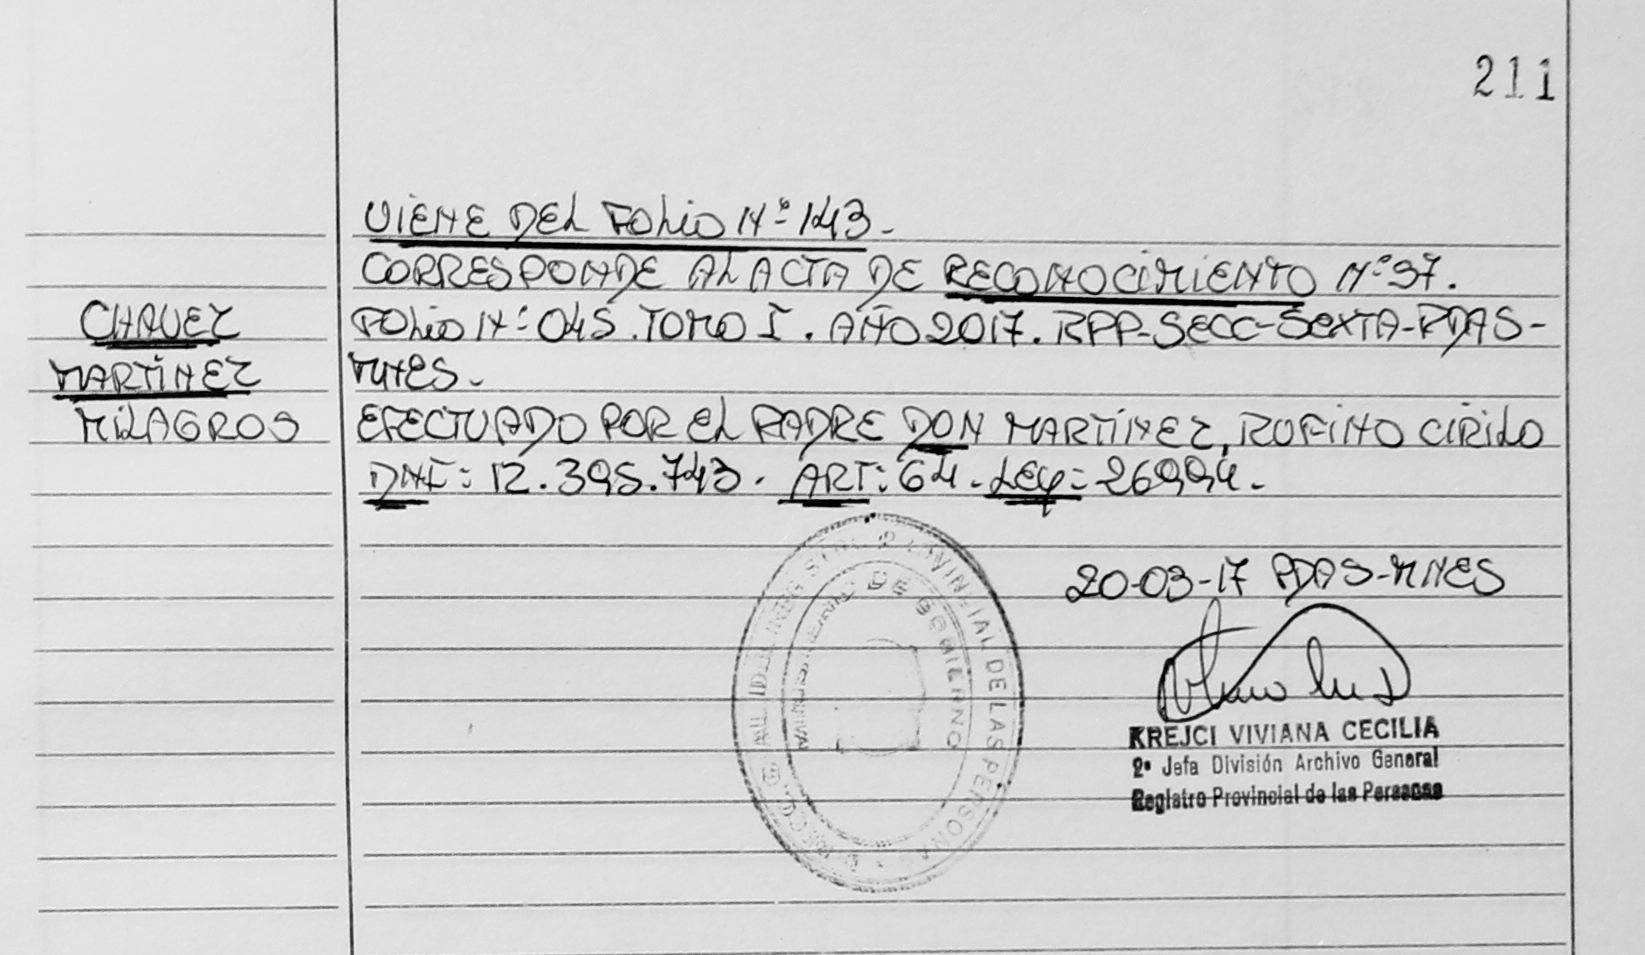 211
VIENE DEL FOLIO Nº 143.
CORRESPONDE AL ACTA DE RECONOCIMIENTO Nº 97.
CHAVEZ
FOLIO Nº 045. TOMO I. AÑO 2017. RPP-SECC-SEXTA-PDAS-
MARTÍNEZ
MNES.
MILAGROS
EFECTUADO POR EL PADRE DON MARTÍNEZ, RUFINO CIRILO
DNI: 12.395.743. ART: 64. LEY: 26994.
20-03-17 PDAS-MNES
PROVINCIAL DE LAS PERSONAS
DE GOBIERNO
KREJCI VIVIANA CECILIA
2ª Jefa División Archivo General
Registro Provincial de las Personas